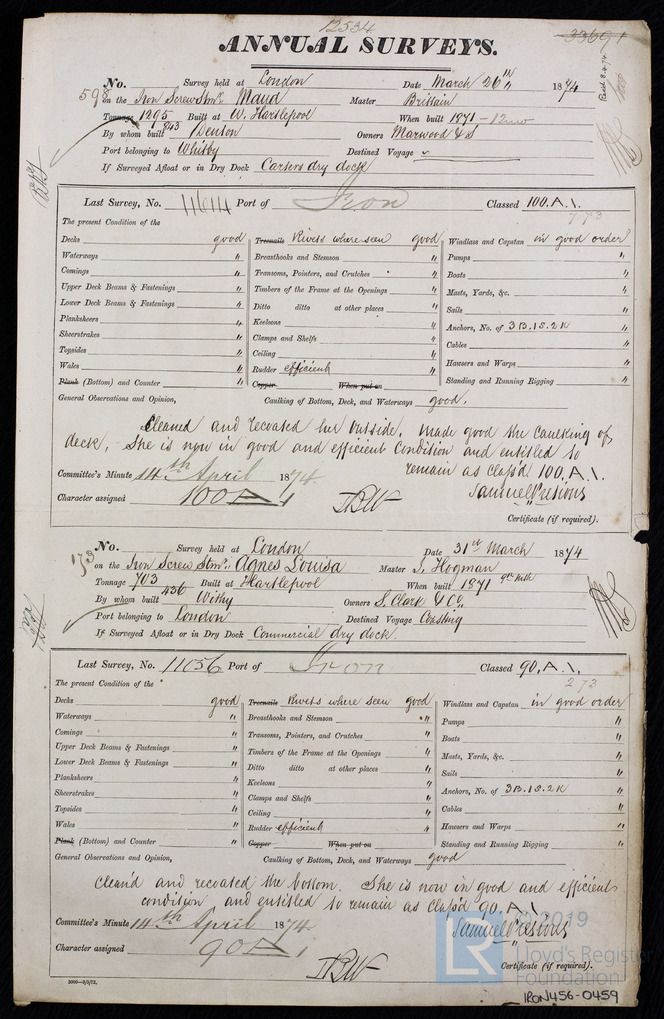 12534
33691
ANNUAL SURVEYS.
No. 598 Survey held at London Date March 26th 1874
on the Iron Screw Stmr Maud Master Brittain
Tonnage 1295 843 Built at W. Hartlepool When built 1871-12mo
By whom built Denton Owners Marwood & S
Port belonging to Whitby Destined Voyage
If Surveyed Afloat or in Dry Dock Carsers dry dock
Last Survey, No. 11614 Port of Iron Classed 100.A.1.
7 73
The present Condition of the
Decks good Treenails Rivets where seen good Windlass and Capstan in good order
Waterways " Breasthooks and Stemson " Pumps "
Comings " Transoms, Pointers, and Crutches " Boats "
Upper Deck Beams & Fastenings " Timbers of the Frame at the Openings " Masts, Yards, &c. "
Lower Deck Beams & Fastenings " Ditto ditto at other places " Sails "
Planksheers " Keelsons " Anchors, No. of 3B.1S.2K "
Sheerstrakes " Clamps and Shelfs " Cables "
Topsides " Ceiling " Hawsers and Warps "
Wales " Rudder efficient " Standing and Running Rigging "
Plank (Bottom) and Counter " Copper When put on
General Observations and Opinion, Caulking of Bottom, Deck, and Waterways good.
Cleaned and recoated her outside. Made good the caulking of
deck, She is now in good and efficient condition and entitled to
remain as class'd 100.A.1.
Committee's Minute 14th April 1874
Character assigned 100A1 Samuel Presious
Certificate (if required).
No. 173 Survey held at London Date 31st March 1874
on the Iron Screw Stmr Agnes Louisa Master J. Hogman
Tonnage 703 436 Built at Hartlepool When built 1871
By whom built Withy Owners S. Clark & Co.
Port belonging to London Destined Voyage Coasting
If Surveyed Afloat or in Dry Dock Commercial dry dock.
Last Survey, No. 11056 Port of Iron Classed 90.A.1.
2 73
The present Condition of the
Decks good Treenails Rivets where seen good Windlass and Capstan in good order
Waterways " Breasthooks and Stemson " Pumps "
Comings " Transoms, Pointers, and Crutches " Boats "
Upper Deck Beams & Fastenings " Timbers of the Frame at the Openings " Masts, Yards, &c. "
Lower Deck Beams & Fastenings " Ditto ditto at other places " Sails "
Planksheers " Keelsons " Anchors, No. of 3B.1S.2K "
Sheerstrakes " Clamps and Shelfs " Cables "
Topsides " Ceiling " Hawsers and Warps "
Wales " Rudder efficient " Standing and Running Rigging "
Plank (Bottom) and Counter " Copper When put on
General Observations and Opinion, Caulking of Bottom, Deck, and Waterways good
Clean'd and recoated the bottom. She is now in good and efficient
condition and entitled to remain as class'd 90.A.1.
Committee's Minute 14th April 1874 Samuel Presious
Character assigned 90A1
Certificate (if required).
© 2019
LR Lloyd's Register
Foundation
IRON456-0459